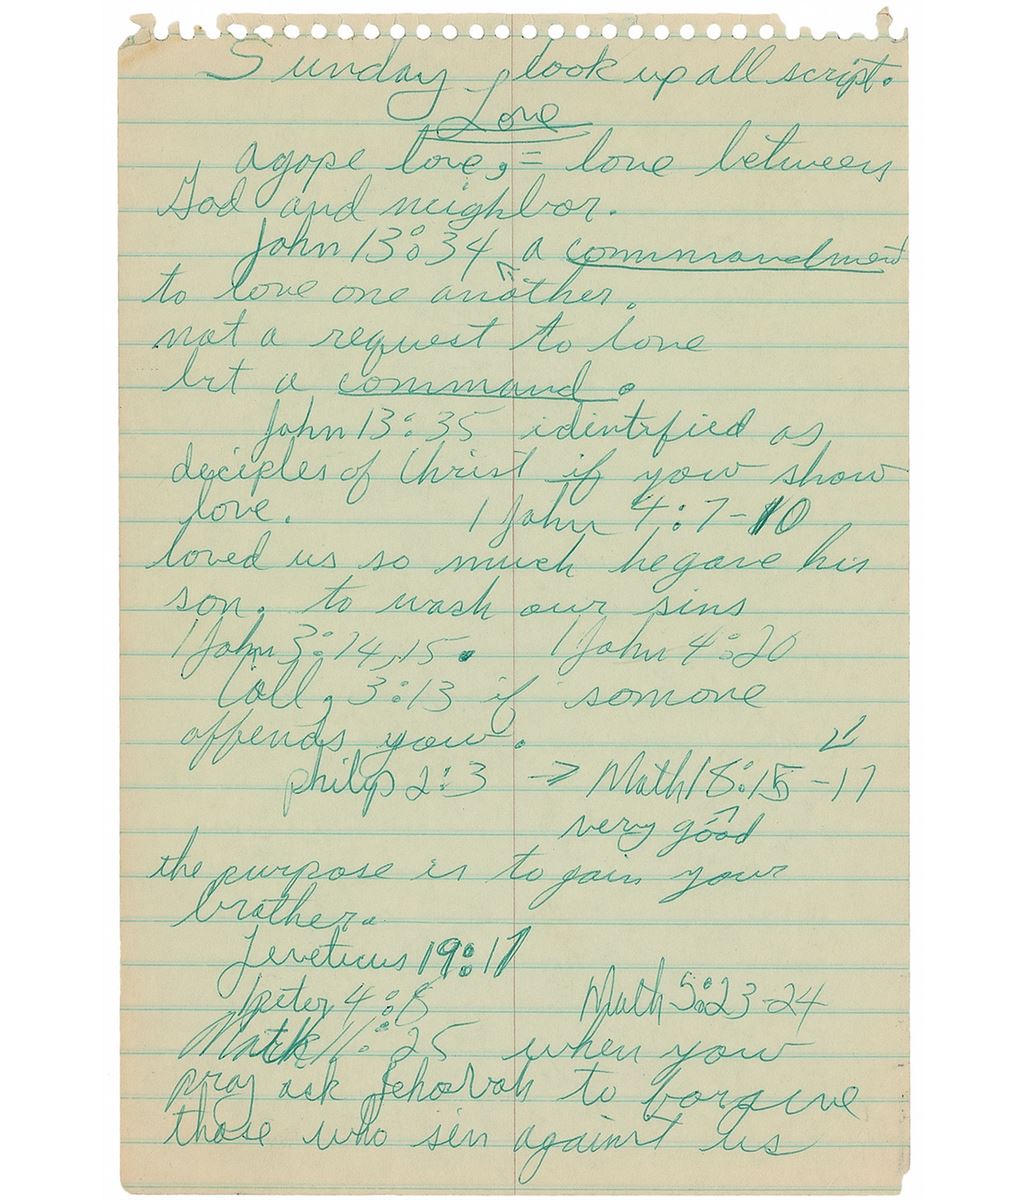 Sunday look up all script.
Love
agope love, = love between
God and neighbor.
John 13:34 a commandment
to love one another.
not a request to love
but a command.
John 13:35 identified as
deciples of Christ if you show
love. 1 John 4:7-10
loved us so much he gave his
son. to wash our sins
1 John 3:14,15. 1 John 4:20
Coll, 3:13 if somone
offends you.
philip 2:3 → Math 18:15-17
very good
the purpose is to gain your
brother.
Leveticus 19:17
1 peter 4:8 Math 5:23-24
Mark 11:25 when you
pray ask Jehovah to forgive
those who sin against us